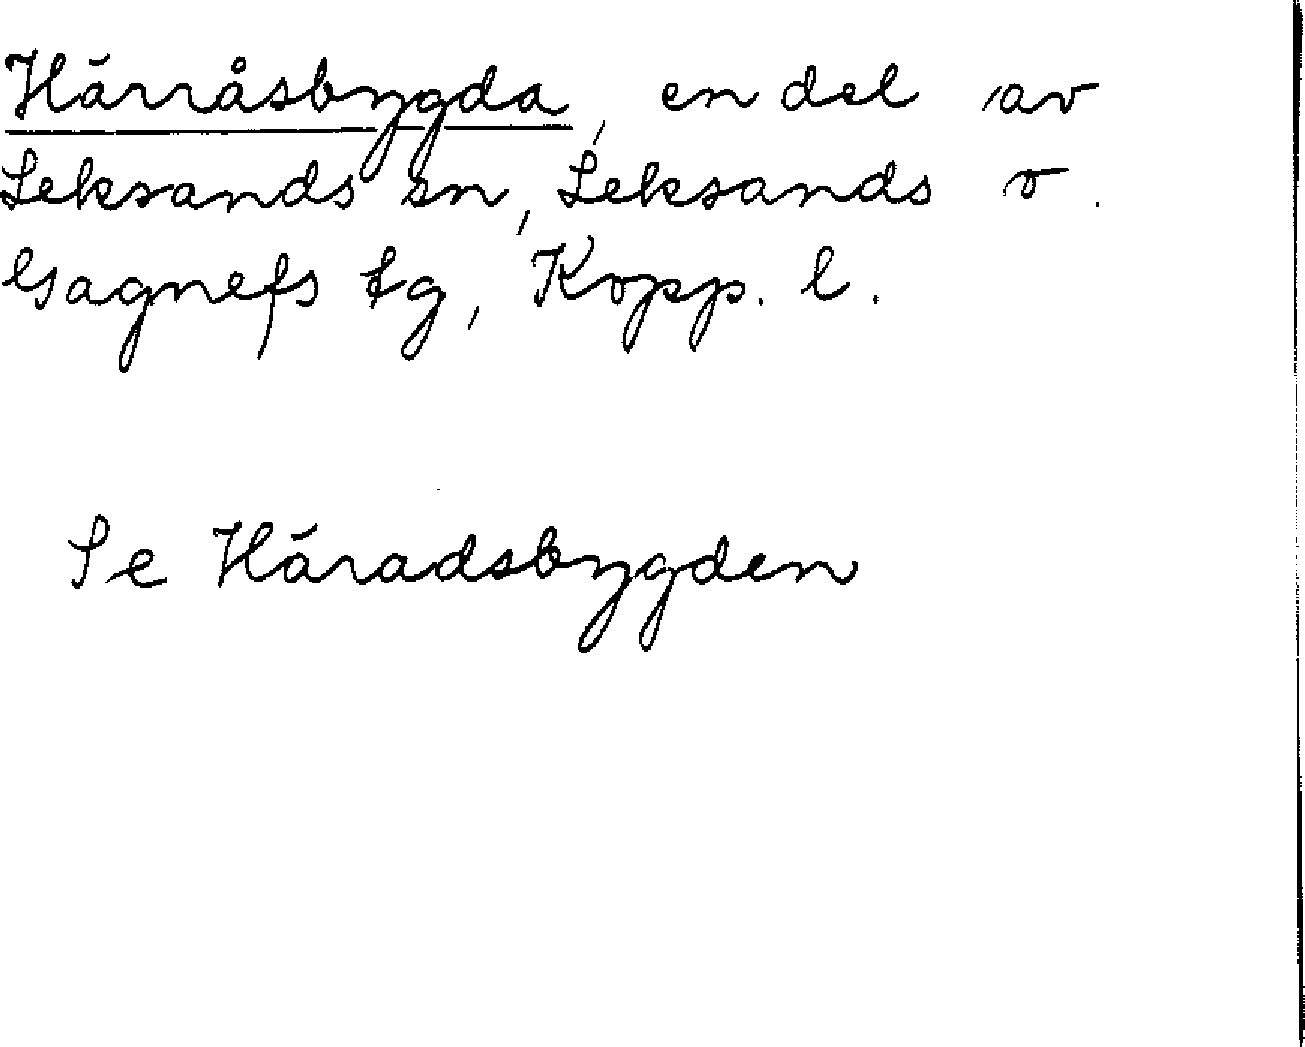 Härråsbygda, en del av
Leksands sn, Leksands o.
Gagnefs tg, Kopp. l.
Se Häradsbygden